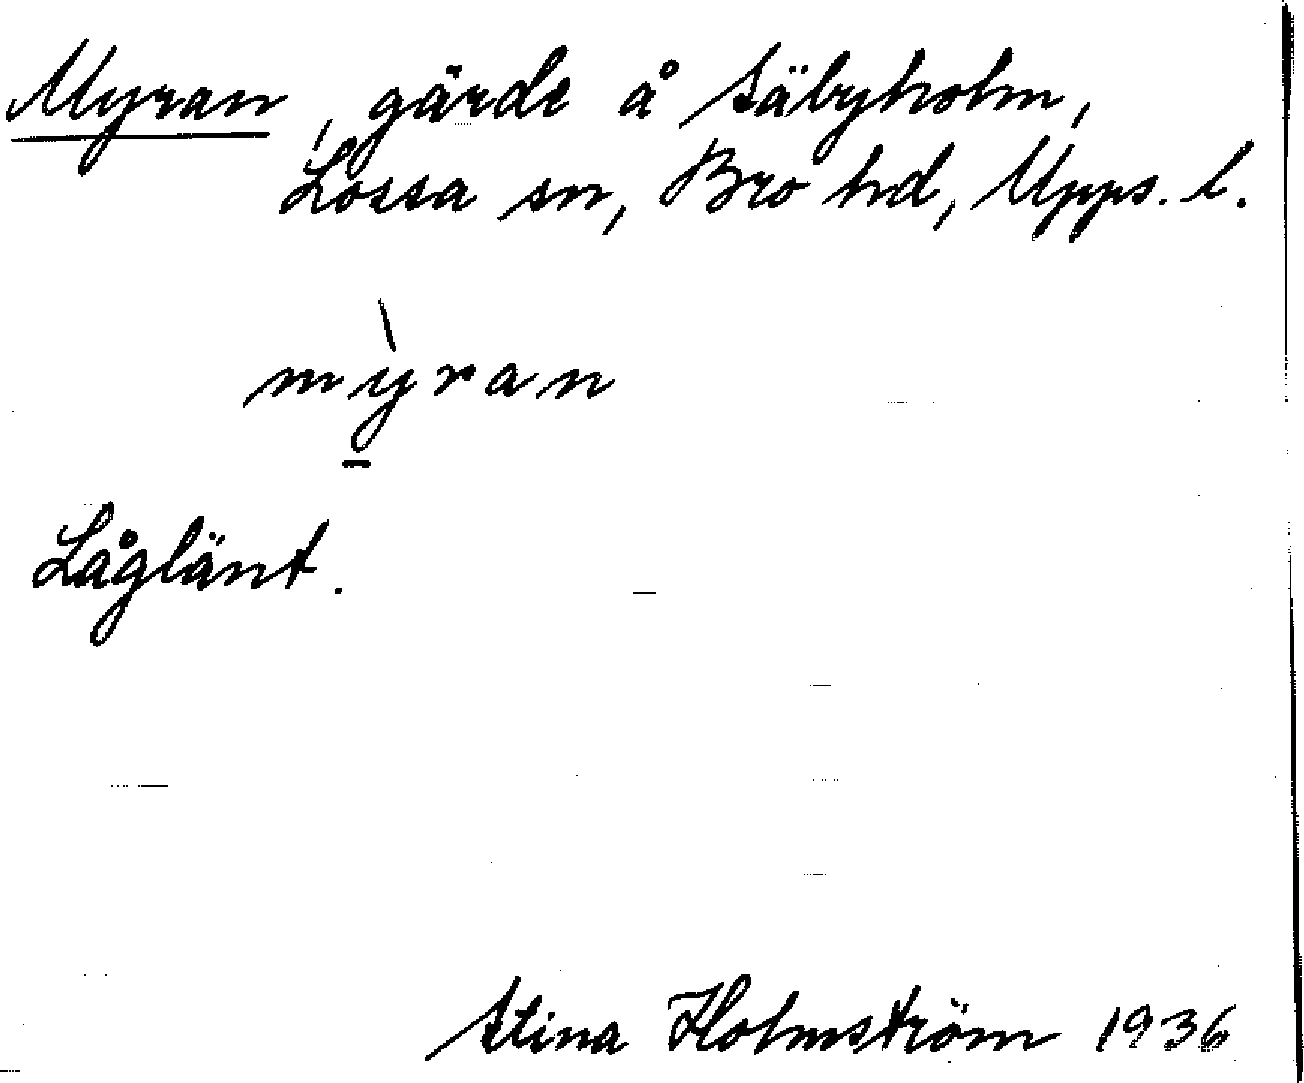 Myran, gärde å Säbyholm,
Lossa sn, Bro hd, Upps. l.
mỳran
Låglänt.
Stina Holmström 1936